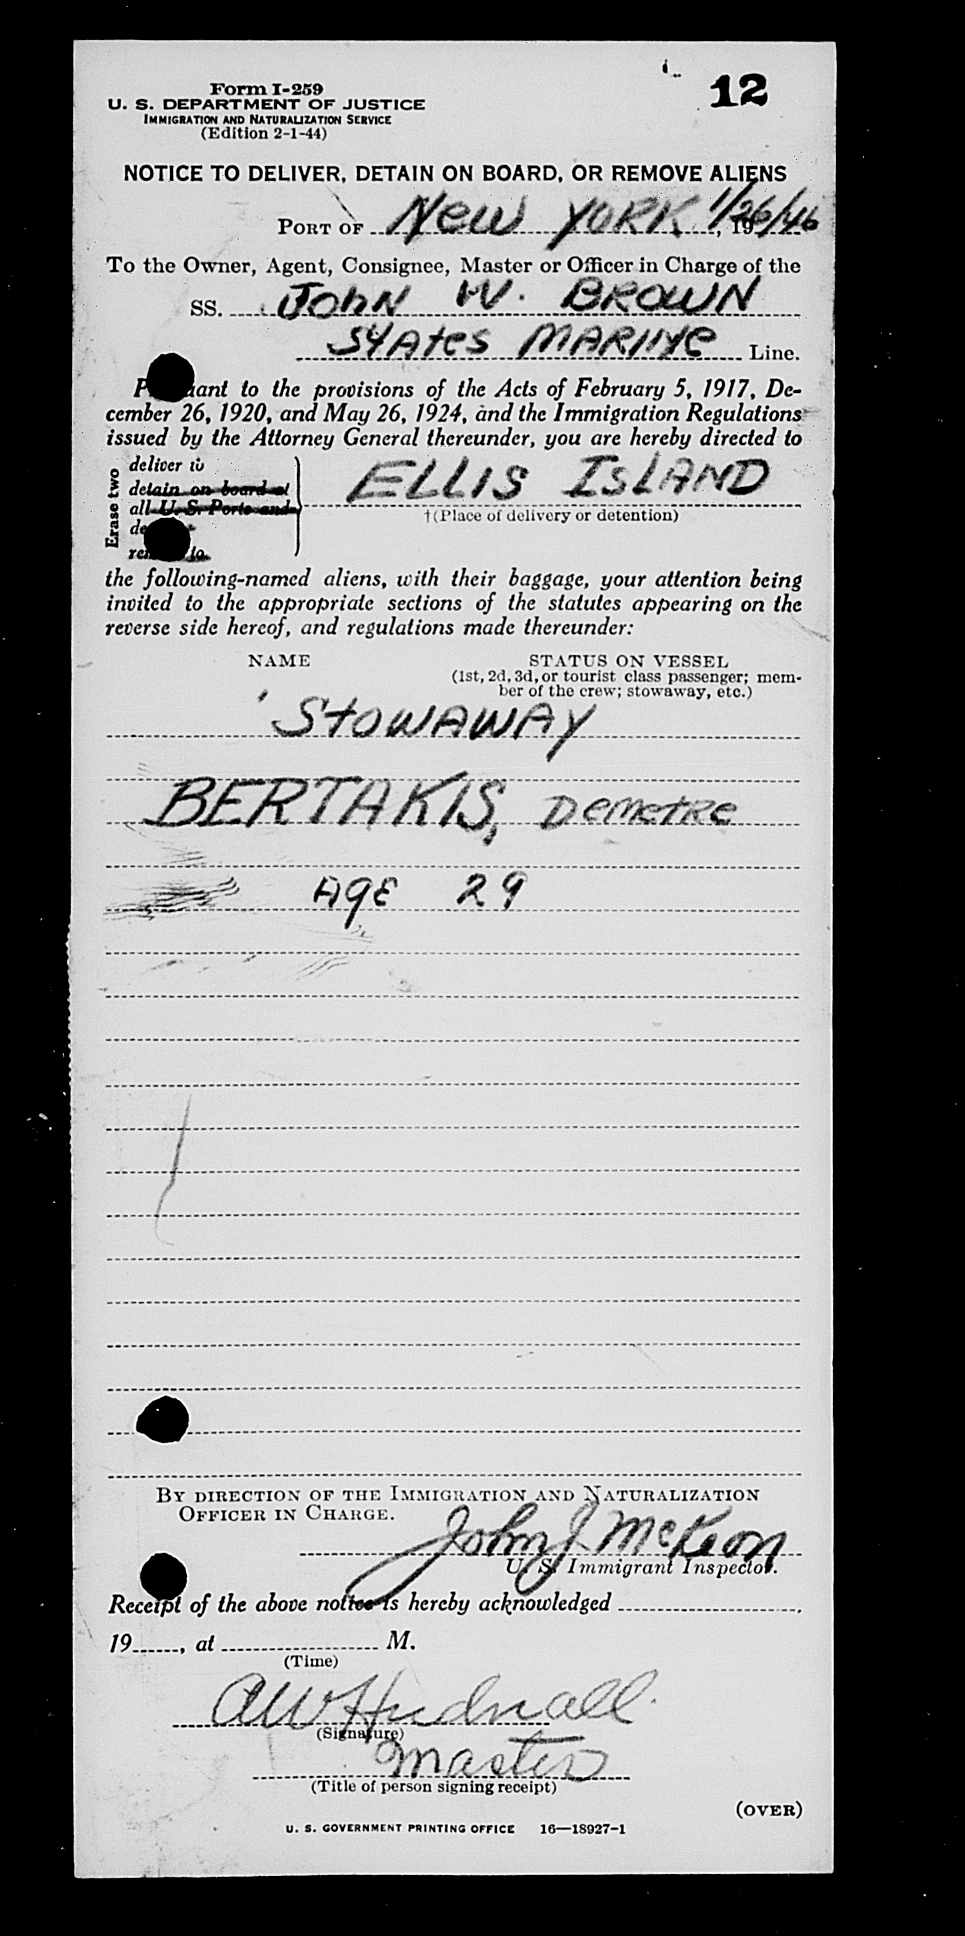 Form I-259
12
U. S. DEPARTMENT OF JUSTICE
IMMIGRATION AND NATURALIZATION SERVICE
(Edition 2-1-44)
NOTICE TO DELIVER, DETAIN ON BOARD, OR REMOVE ALIENS
PORT OF New YORK 1/26/46, 19
To the Owner, Agent, Consignee, Master or Officer in Charge of the
SS. JOHN W. BROWN
STATES MARINE Line.
to the provisions of the Acts of February 5, 1917, De-
cember 26, 1920, and May 26, 1924, and the Immigration Regulations
issued by the Attorney General thereunder, you are hereby directed to
Erase two
deliver to
detain on board at
all U. S. Ports and
to
ELLIS ISLAND
†(Place of delivery or detention)
the following-named aliens, with their baggage, your attention being
invited to the appropriate sections of the statutes appearing on the
reverse side hereof, and regulations made thereunder:
NAME STATUS ON VESSEL
(1st, 2d, 3d, or tourist class passenger; mem-
ber of the crew; stowaway, etc.)
STOWAWAY
BERTAKIS, DEMETRE
AGE 29
BY DIRECTION OF THE IMMIGRATION AND NATURALIZATION
OFFICER IN CHARGE.
John J McKeon
U. S. Immigrant Inspector.
Receipt of the above notice is hereby acknowledged
19, at M.
(Time)
AW Hudnall
(Signature)
Master
(Title of person signing receipt)
(OVER)
U. S. GOVERNMENT PRINTING OFFICE 16—18927-1